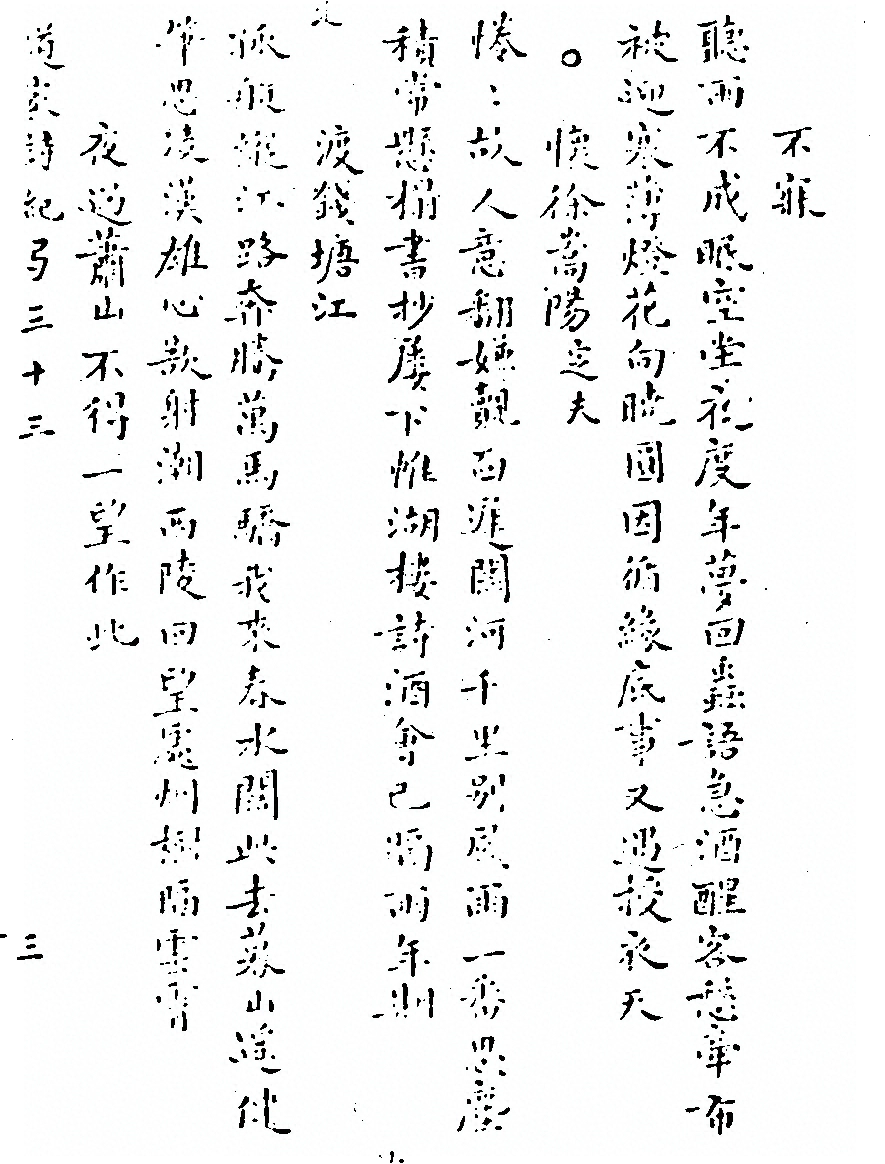 不寐
聽雨不成眠空坐夜度年夢回蟲語急酒醒客愁牽布
被迎寒薄燈花向曉圓因循緣底事又遇授衣天
○懷徐嵩陽定夫
惓〻故人意翻嫌覿面遲關河千里別風雨一番思塵
積常懸榻書抄屢下帷湖樓詩酒會已隔兩年期
渡錢塘江
孤艇縱江路奔勝萬馬驕我來春水闊此去蔡山遙健
筆思凌漢雄心欲射潮西陵回望處州樹隔雲霄
夜過蕭山不得一望作此
詩紀弓三十三
三